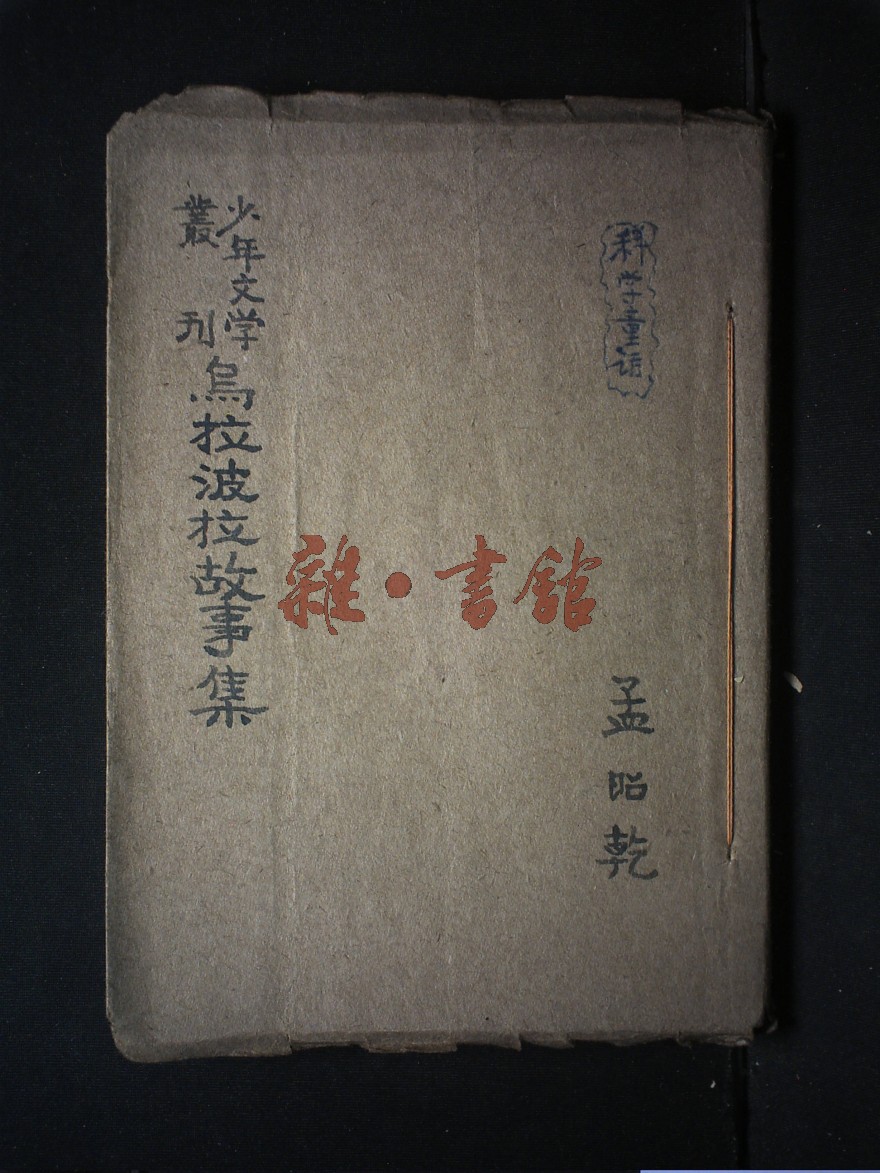 科学童话
孟昭乾
少年文学
叢刊
烏拉波拉故事集
雜·書館